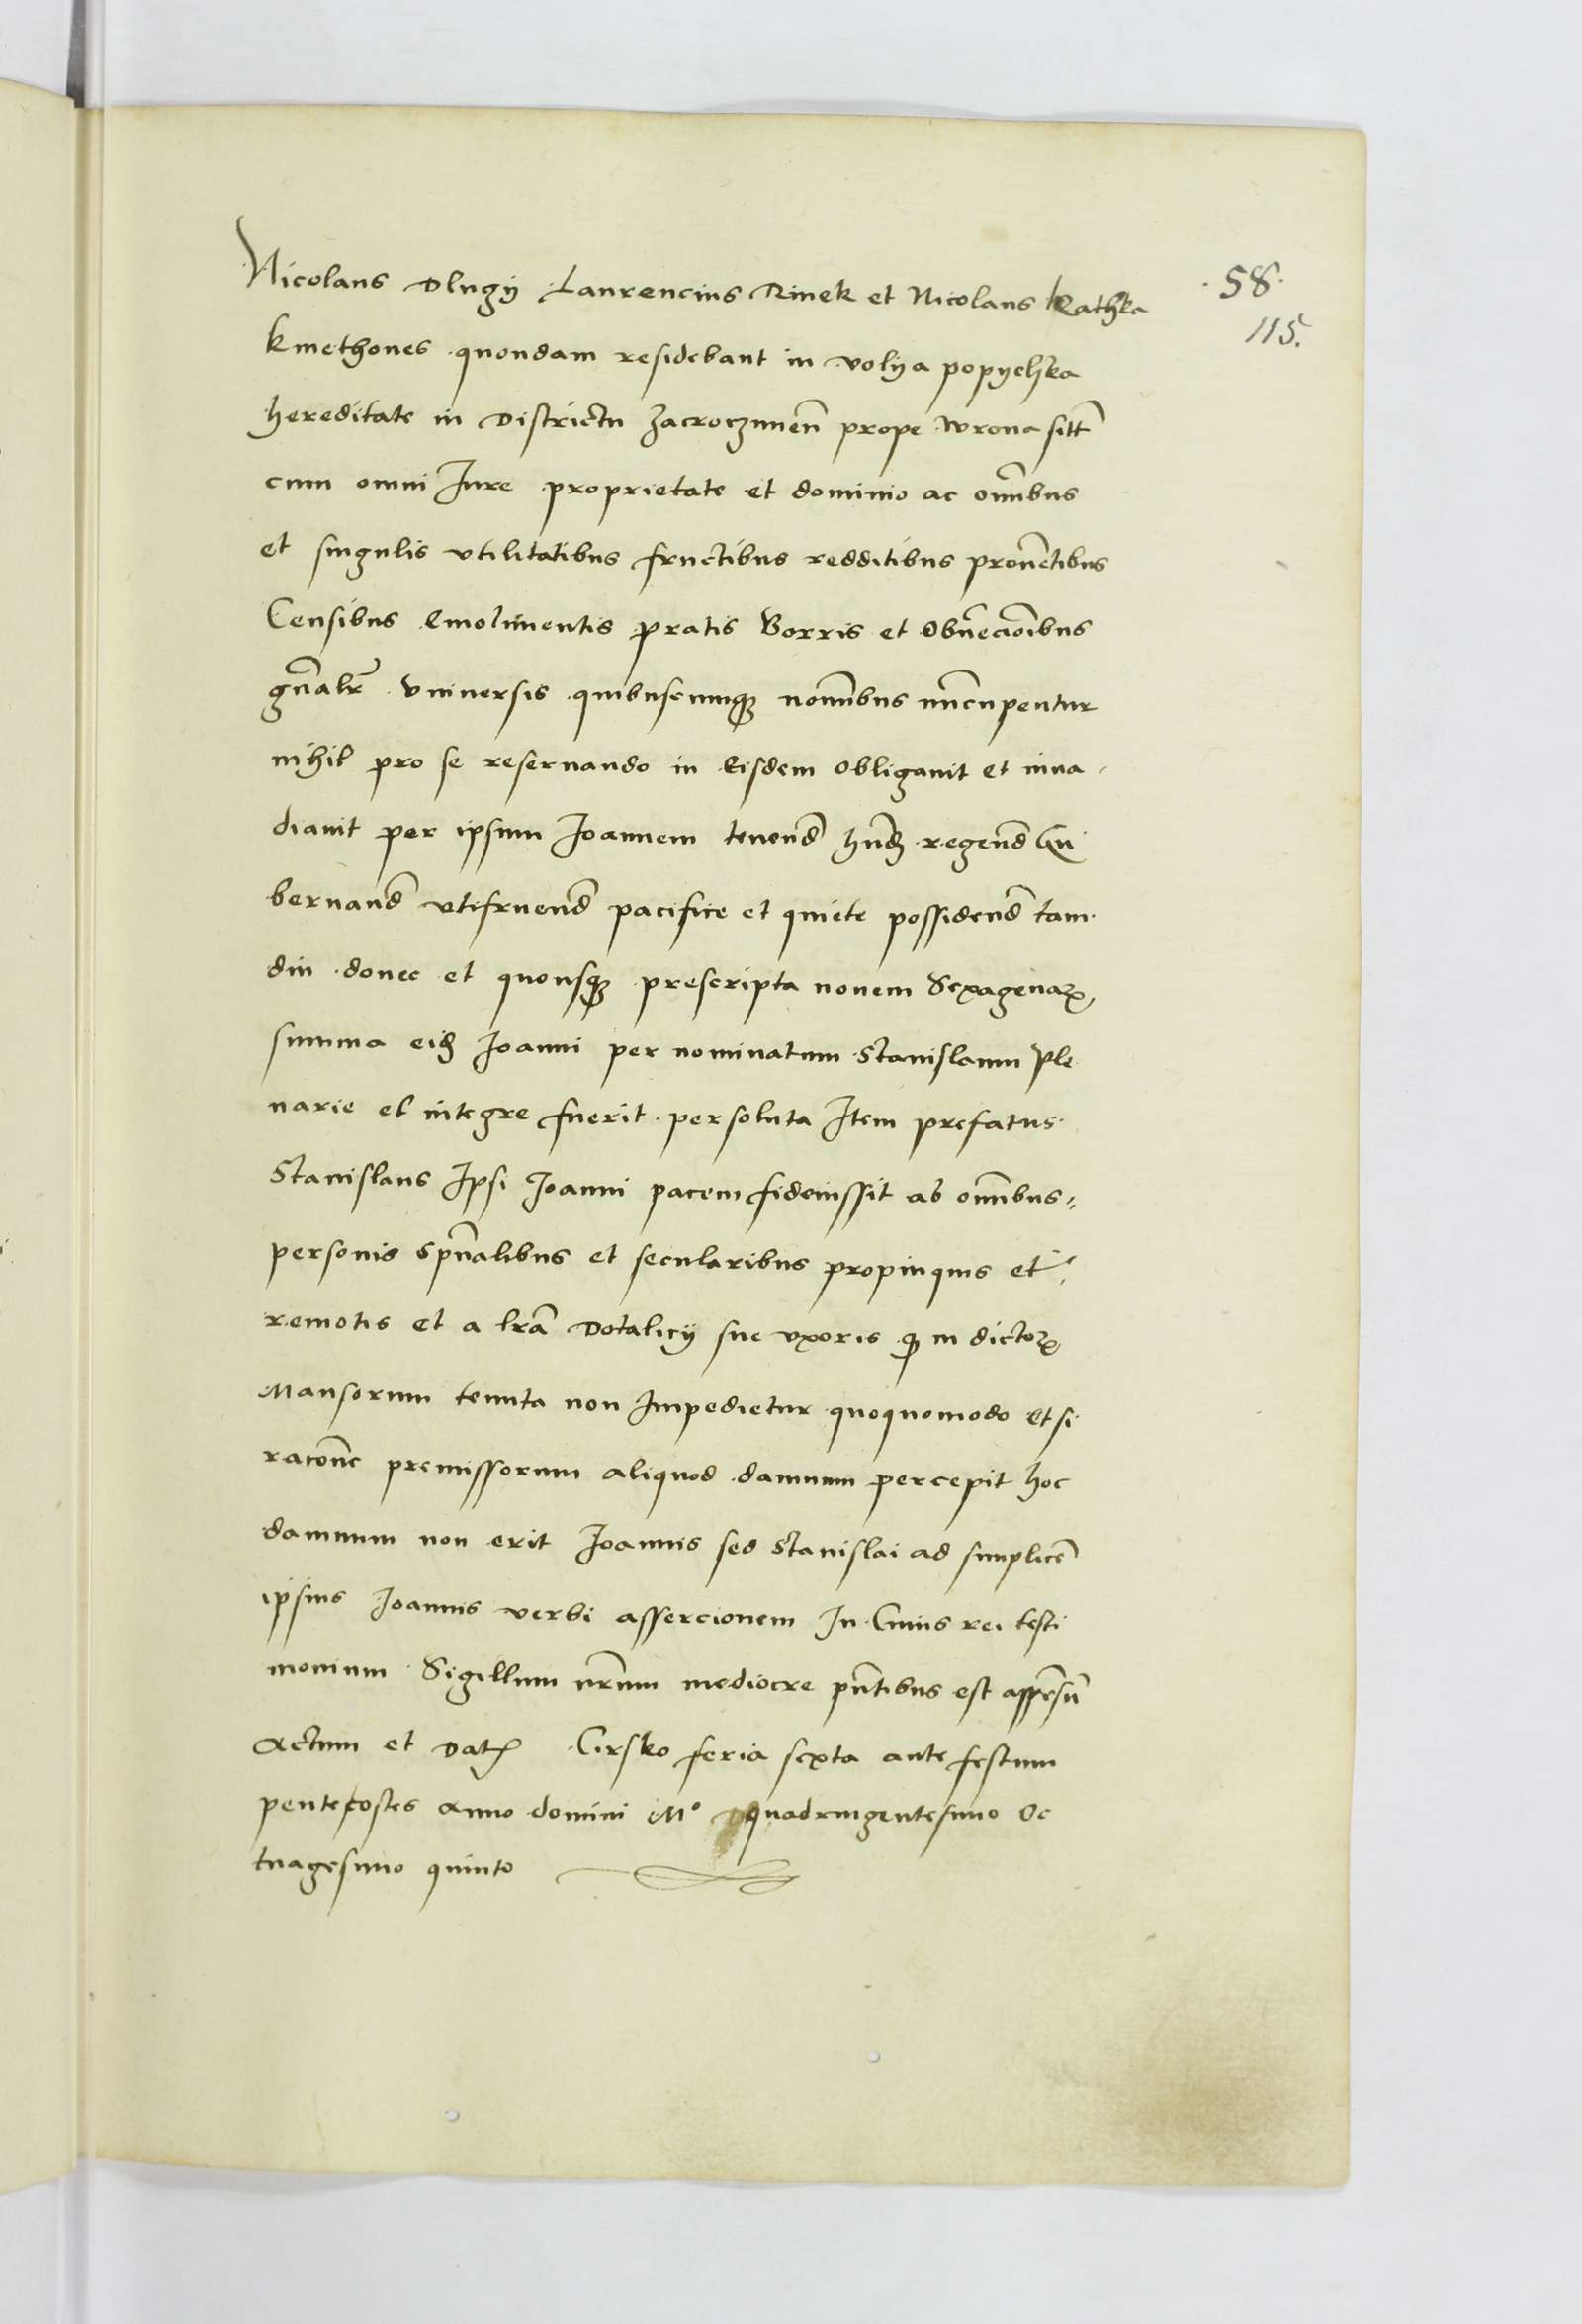 Nicolaus Dlugÿ Laurencius Rinek et Nicolaus Kathka
58.
115.
kmethones quondam residebant in volÿa popychka
hereditate in Districtu Zacroczimen̄ prope Wrona sitt̄
cum omni Jure proprietate et dominio ac om̄ibus
et singulis vtilitatibus fructibus redditibus prouēntibus
Censibus Emolimentis pratis Borris et Obuēcōibus
gn̄alr̄ Vniuersis quibuscumqȝ nom̄ibus nūcupentur
nihil pro se reseruando in Eisdem obligauit et inua-
diauit per ipsum Joannem tenend̄ hn̄d regend̄ Gu
bernand̄ vtifruend̄ pacifice et quiete possidend̄ tam
diu donec et quousqȝ prescripta nouem Sexagenaꝝ
summa eid Joanni per nominatum Stanislaum Ple
narie et integre fuerit persoluta Item prefatus
Stanislaus Ipsi Joanni pacem fideiussit ab om̄ibus
personis spūalibus et secularibus propinquis et
remotis et a lrā Dotalicÿ sue vxoris qȝ in dictoꝝ
Mansorum tenuta non Impedietur quoquomodo Et si
racōne premissorum aliquod damnum percepit hoc
damnum non erit Joannis sed Stanislai ad simplicē
ipsius Joannis verbi assercionem In Cuius rei testi
monium Sigillum nr̄um mediocre pn̄tibus est appēsū
Actum et Datȝ Cirsko feria sexta ante festum
pentecostes Anno domini Mº quadringentesimo Oc
tuagesimo quinto